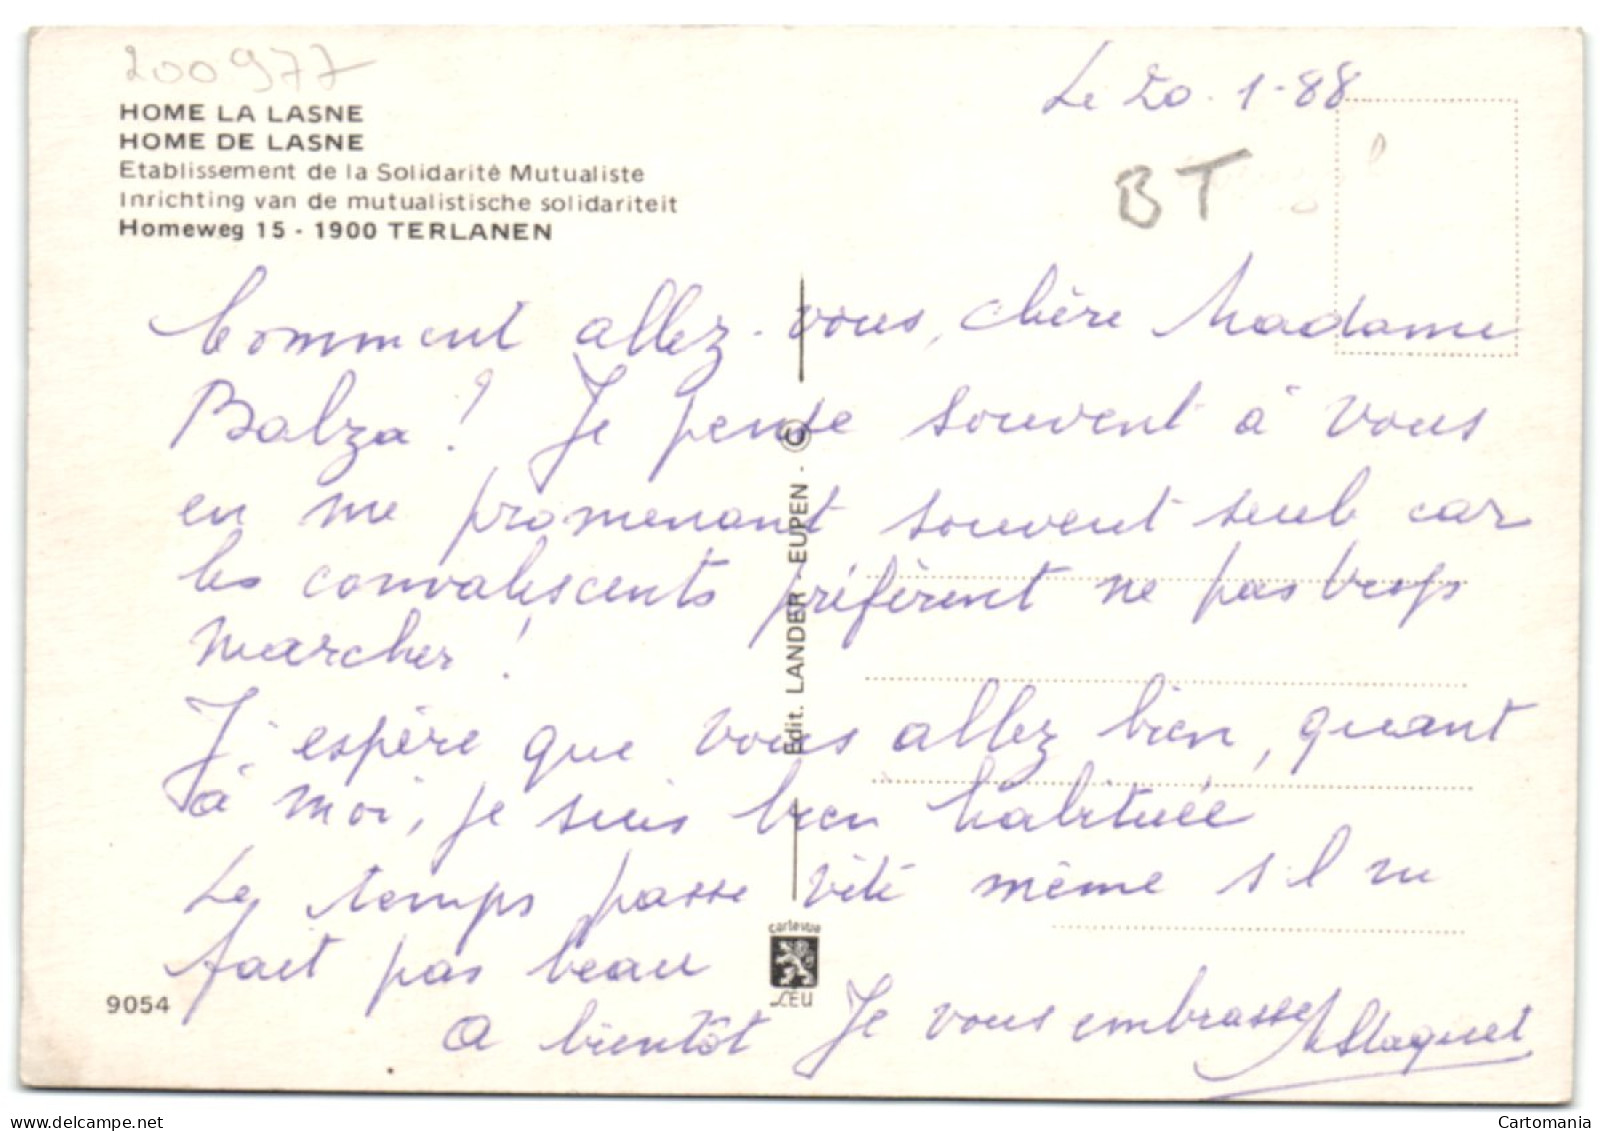 200977
Le 20.1-88
HOME LA LASNE
HOME DE LASNE
Etablissement de la Solidarité Mutualiste
Inrichting van de mutualistische solidariteit
Homeweg 15 - 1900 TERLANEN
BT
Comment allez-vous, chère Madame
Balza? Je pense souvent à vous
en me promenant souvent seule car
les convalescents préfèrent ne pas trop
marcher!
J'espère que vous allez bien, quant
à moi, je suis bien habituée
Le temps passe vite même s'il ne
fait pas beau
A bientôt Je vous embrasse
Edit. LANDER - EUPEN - ©
cartevue
CEU
9054
Cartomania
www.delcampe.net